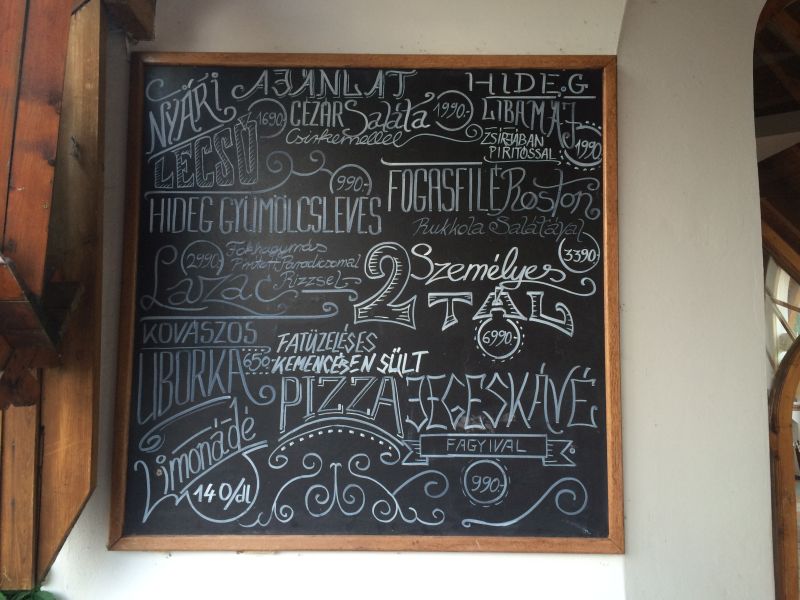 NYÁRI AJÁNLAT
LECSÓ 1690.-
CÉZÁR Saláta 1990.-
Csirkemellel
HIDEG
LIBAMÁJ
ZSÍRJÁBAN
PIRÍTÓSSAL
1990
HIDEG GYÜMÖLCSLEVES
990.-
FOGASFILÉ Roston
Rukkola Salátával
3390.-
Lazac 2990.-
Fokhagymás
Pirított Paradicsommal
Rizzsel
2 Személyes
TÁL
6990.-
KOVÁSZOS
UBORKA 650.-
FATÜZELÉSES
KEMENCÉBEN SÜLT
PIZZA
JEGESKÁVÉ
FAGYIVAL
990.-
Limonádé
140/dl